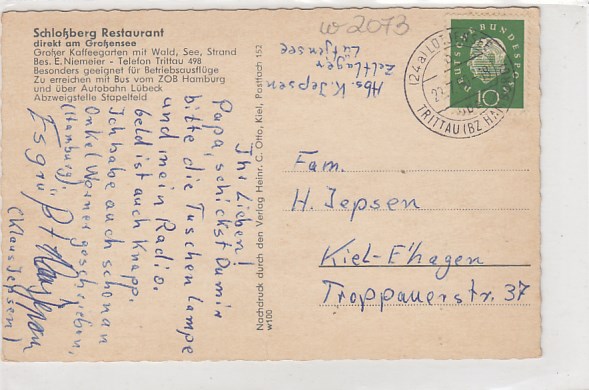 Schloßberg Restaurant
direkt am Großensee
Großer Kaffeegarten mit Wald, See, Strand
Bes. E. Niemeier - Telefon Trittau 498
Besonders geeignet für Betriebsausflüge
Zu erreichen mit Bus vom ZOB Hamburg
und über Autobahn Lübeck
Abzweigstelle Stapelfeld
w 2073
Abs. K. Jepsen
Zeltlager
Lütjensee
DEUTSCHE BUNDESPOST
10
(24a)
TRITTAU (BZ HA
Ihr Lieben!
Papa, schickst Du mir
bitte die Taschenlampe
und mein Radio.
Geld ist auch knapp.
Ich habe auch schon an
Onkel Werner geschrieben,
(Hamburg).
Es grü
(Klaus Jepsen)
Nachdruck durch den Verlag Heinr. C. Otto, Kiel, Postfach 152
w100
Fam.
H. Jepsen
Kiel-E'hagen
Troppauerstr. 37